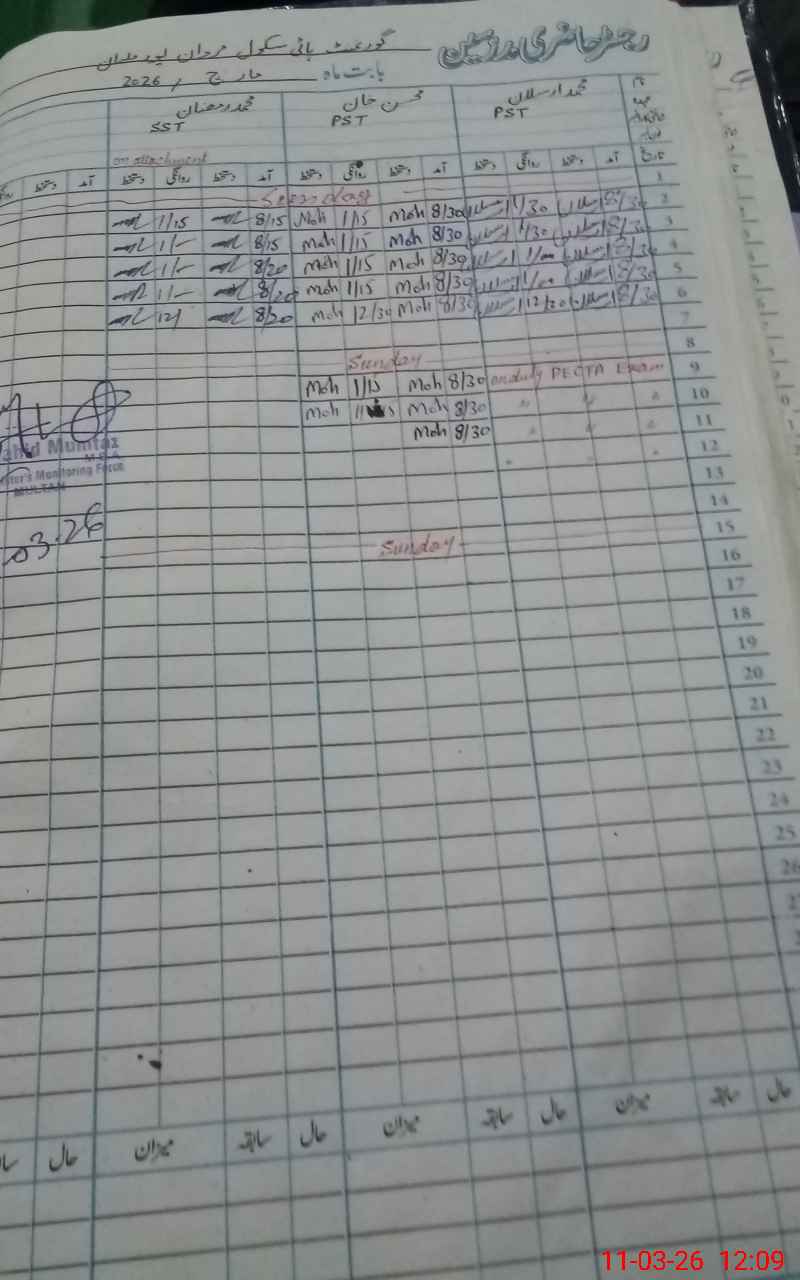 رجسٹر حاضری مدرسین گورنمنٹ ہائی سکول مردان پور ملتان
بابت ماہ مارچ 2026
نام محمد ارسلان محسن خان محمد رمضان
عہدہ PST PST SST
on attachment
تاریخ آمد دستخط روانگی دستخط آمد دستخط روانگی دستخط آمد دستخط روانگی دستخط آمد دستخط
1 Sunday
2 8/30 1/30 8/30 Moh 1/15 Moh 8/15 1/15
3 8/30 1/30 8/30 Moh 1/15 Moh 8/15 1/-
4 8/30 1/00 8/30 Moh 1/15 Moh 8/20 1/-
5 8/30 1/00 8/30 Moh 1/15 Moh 8/20 1/-
6 8/30 12/30 8/30 Moh 12/30 Moh 8/20 12/
7
8 Sunday
9 onduty PECTA Exam 8/30 Moh 1/15 Moh
10 " " " 8/30 Moh Moh
11 " " " 8/30 Moh
12
13
14
15 Sunday
16
17
18
19
20
21
22
23
24
25
26
Mumtaz
M.E.A
Monitoring Force
MULTAN
03-26
حال سابقہ میزان حال سابقہ میزان حال سابقہ میزان حال
11-03-26 12:09